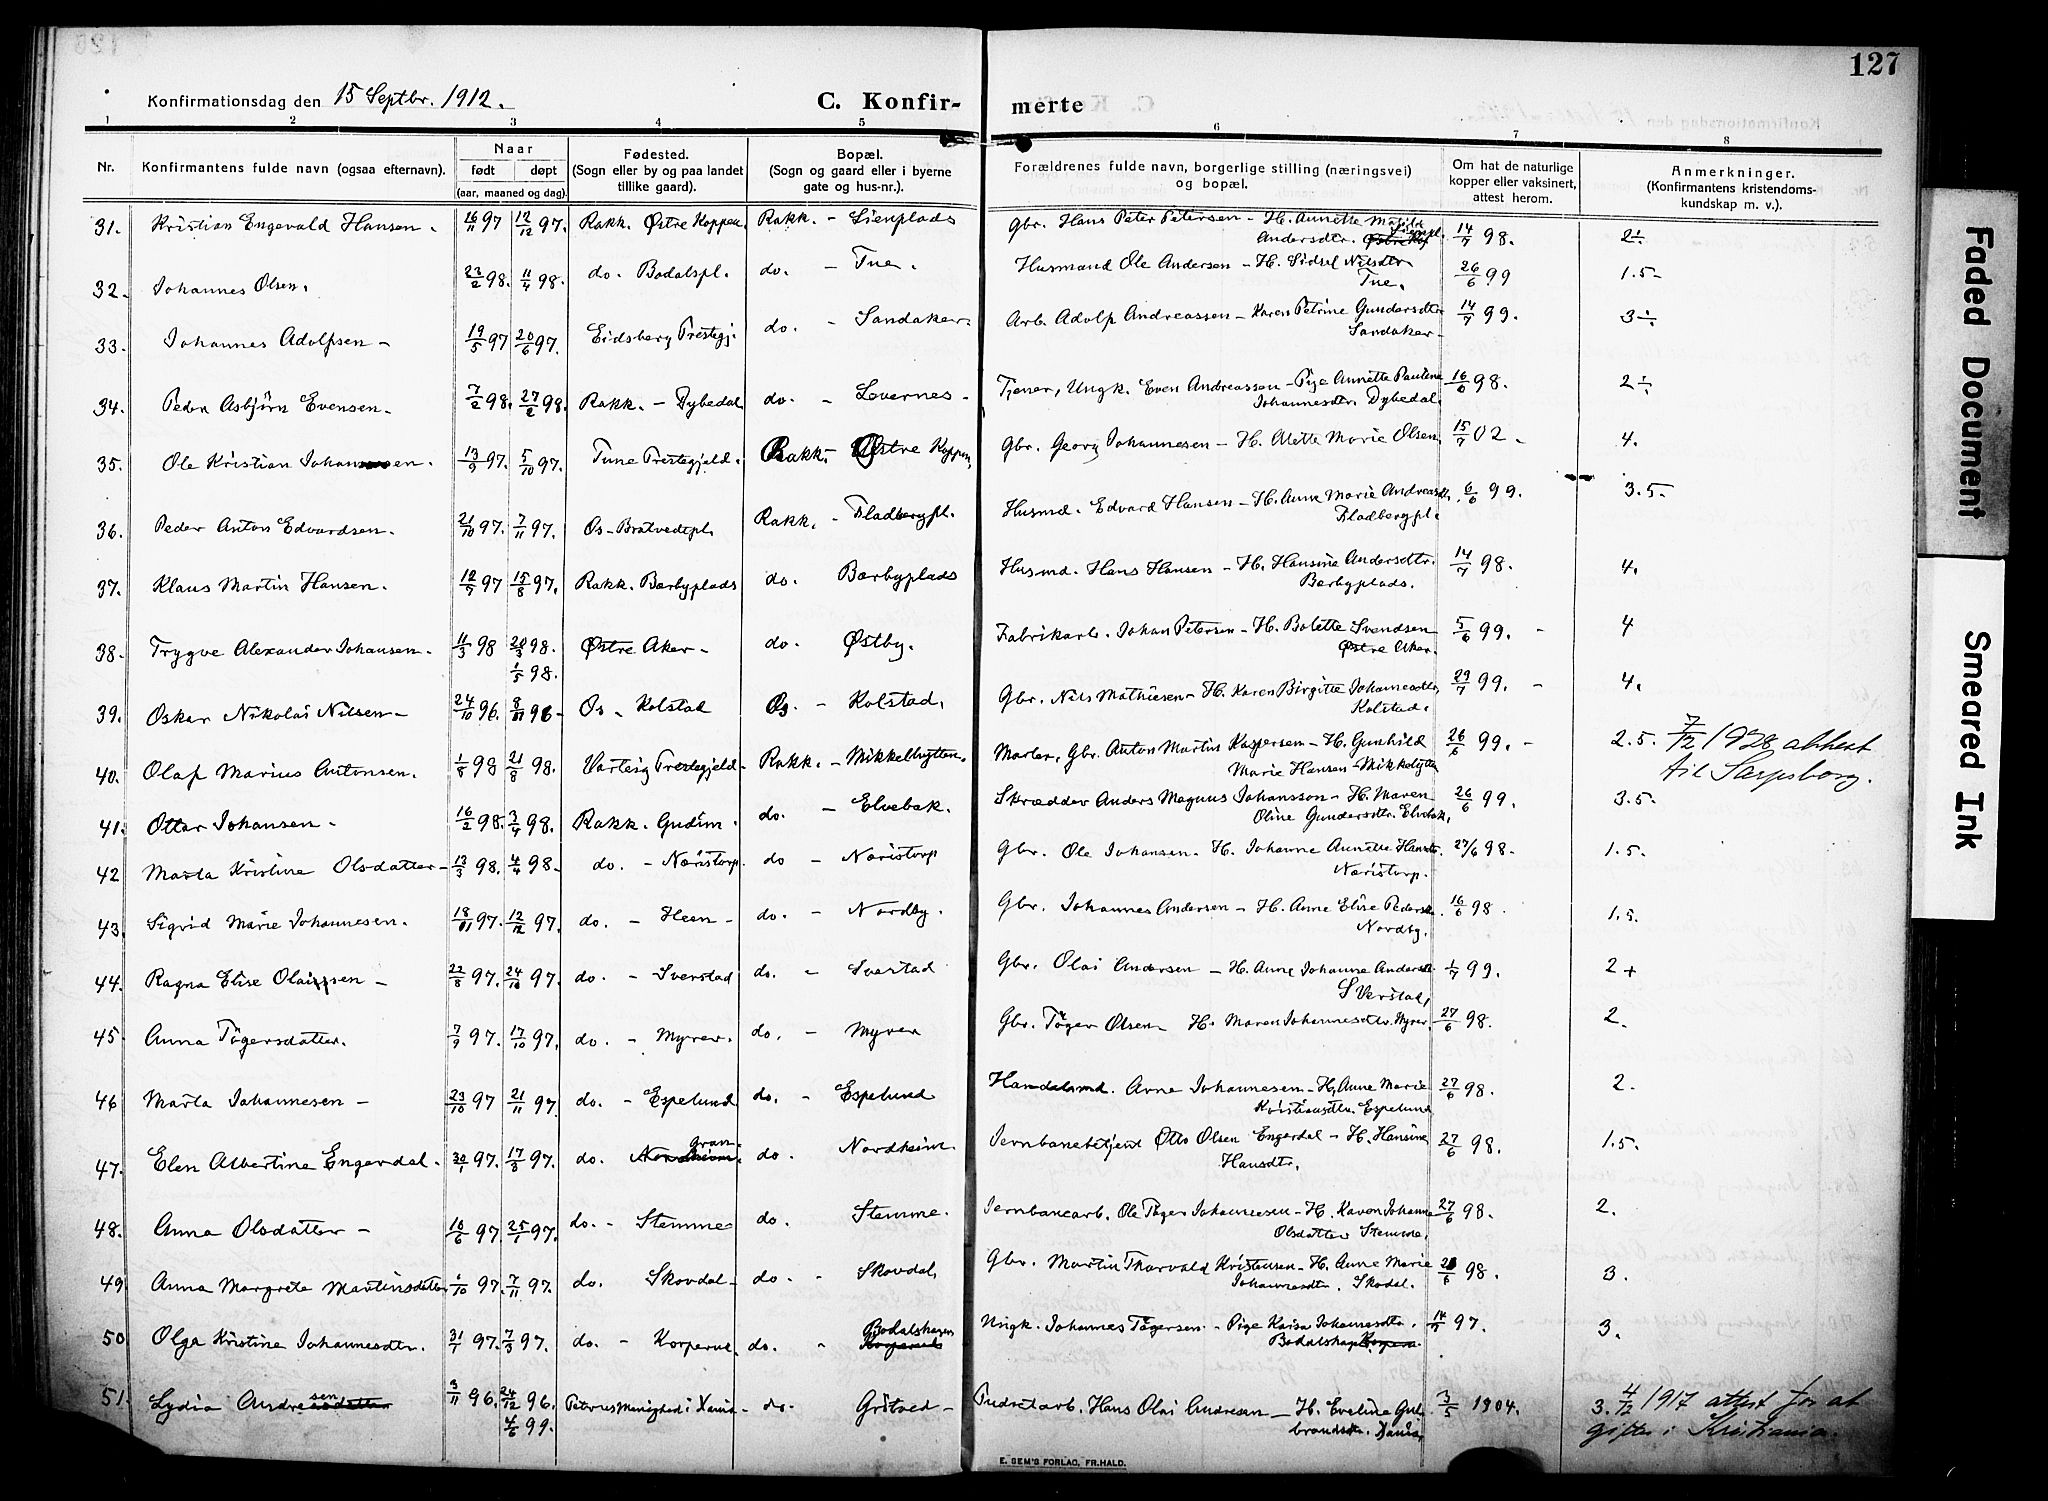 127
Konfirmationsdag den 15 Septbr. 1912.
C. Konfir- merte
1 2 3 4 5 6 7 8
Nr. Konfirmantens fulde navn (ogsaa efternavn). Naar født døpt (aar, maaned og dag). Fødested. (Sogn eller by og paa landet tillike gaard). Bopæl. (Sogn og gaard eller i byerne gate og hus-nr.). Forældrenes fulde navn, borgerlige stilling (næringsvei) og bopæl. Om hat de naturlige kopper eller vaksinert, attest herom. Anmerkninger. (Konfirmantens kristendoms- kundskap m. v.).
31. Kristian Engevald Hansen. 16/11 97 12/12 97. Rakk. Østre Koppen. Rakk. - Lienplads Gbr. Hans Peter Petersen - H. Annette Matilde Andersdtr. 14/7 98. 2÷
32. Johannes Olsen. 23/2 98. 11/4 98. do. Bodalspl. do. - Tue. Husmand Ole Andersen - H. Sidsel Nilsdtr. Tue. 26/6 99 1.5-
33. Johannes Adolfsen - 19/5 97 20/6 97. Eidsberg Prestegj. do. - Sandaker. Arb. Adolf Andreassen - Karen Petrine Gundersdtr Sandaker - 14/7 99. 3÷
34. Peder Asbjørn Evensen. 7/2 98. 27/2 98. Rakk. - Dybedal do. - Levernes - Tjener, Ungk. Even Andreassen - Pige Annette Pauline Johannesdtr. Dybedal. 16/6 98. 2÷
35. Ole Kristian Johansen. 13/9 97. 5/10 97. Tune Prestegjeld. Rakk. - Østre Koppen, Gbr. Georg Johannesen - H. Alette Marie Olsen, 15/7 02. 4.
36. Peder Anton Edvardsen. 21/10 97. 7/11 97. Os - Bratvedtpl. Rakk. - Fladbergpl. Husmd. Edvard Hansen - H. Anne Marie Andreasdtr. Fladbergpl. 6/6 99. 3.5-
37. Klaus Martin Hansen. 12/7 97 15/8 97. Rakk. Bærbyplads do. Bærbyplads Husmd. Hans Hansen - H. Hansine Andersdtr. Bærbyplads. 14/7 98. 4.
38. Trygve Alexander Johansen. 11/3 98 20/3 98. 1/5 98. Østre Aker - do. Østby. Fabrikarb. Johan Petersen - H. Bolette Svendsen Østre Aker. 5/6 99. - 4
39. Oskar Nikolai Nilsen - 24/10 96. 8/11 96 - Os - Kolstad Os. - Kolstad. Gbr. Nils Mathiesen - H. Karen Birgitte Johannesdtr, Kolstad. 29/7 99. - 4.
40. Olaf Marius Antonsen. 1/8 98 21/8 98. Varteig Prestegjeld - Rakk. - Mikkelhytten. Murer, Gbr. Anton Martin Kaspersen - H. Gunhild Marie Hansen - Mikkelhytta 26/6 99. - 2.5. 7/12 1928 attest til Sarpsborg.
41. Ottar Johansen - 16/2 98. 3/4 98. Rakk. Gudim. do. - Elvebak. Skrædder Anders Magnus Johansson - H. Maren Oline Gundersdtr. Elvebak, 26/6 99. 3.5-
42 Marta Kristine Olsdatter - 13/3 98. 4/4 98. do. - Næristorp. do - Næristorp Gbr. Ole Johansen. H. Johanne Annette Hansdtr. Næristorp. 27/6 98. 1.5.
43. Sigrid Marie Johannesen. 18/11 97. 12/12 97. do. - Heen - do. - Nordby. Gbr. Johannes Andersen - H. Anne Elise Pedersdtr. Nordby. 16/6 98. 1.5.
44. Ragna Elise Olaissen - 22/8 97. 24/10 97. do. - Sverstad do. - Sverstad Gbr. Olai Andersen - H. Anne Johanne Andersdtr. Sverstad, 1/7 99. 2+
45. Anna Tøgersdatter. 7/9 97. 17/10 97. do. - Myrer. do. - Myrer Gbr. Tøger Olsen H. Maren Johannesdtr. Myrer. 27/6 98. 2.
46 Marta Johannesen - 23/10 97 21/11 97 do. - Espelund do. - Espelund Handelsmd. Arne Johannesen - H. Anne Marie Kristiansdtr. Espelund 27/6 98. 2.
47. Elen Albertine Engerdal. 30/1 97. 17/3 97. do. Gran Nordheim. do. - Nordheim Jernbanebetjent Otto Olsen Engerdal - H. Hansine Hansdtr. 27/6 98. 1.5.
48. Anna Olsdatter - 16/6 97. 25/7 97. do. - Stemme do. Stemme. Jernbanearb. Ole Tøger Johannesen - H. Karen Johanne Olsdatter Stemme. 27/6 98. 2.
49 Anna Margrete Martinsdatter 1/10 97. 7/11 97. do. Skovdal - do. - Skovdal, Gbr. Martin Thorvald Kristensen - H. Anne Marie Johannesdtr. Skodal. 28/6 98. 3.
50 Olga Kristine Johannesdtr. 31/1 97. 7/3 97. do. - Korperud. do. - Bodalshagen Korperud Ungk. Johannes Tøgersen - Pige Kaisa Johannesdtr. Bodalshag. 14/7 97. 3.
51. Lydia Andresen 3/11 96. 26/12 96. 4/6 99. Petrus Menighed i Xania - do. Gritved - Pudretarb. Hans Olai Andresen - H. Eveline Gulbrandsdtr. Xania, 3/5 1904. 3. 4/12 1917 attest for at gifte i Kristiania.
E. SEM'S FORLAG, FR.HALD.
Faded Document
Smeared Ink